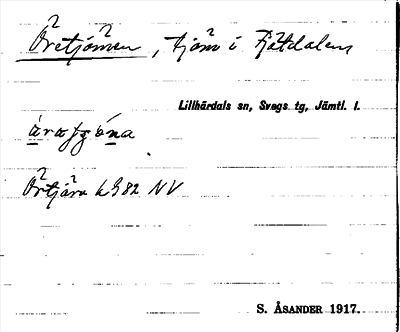 Öretjönen, tjärn i Fjätdalens
Lillhärdals sn, Svegs tg, Jämtl. l.
Örtjärn kG82 NV
S. ÅSANDER 1917.